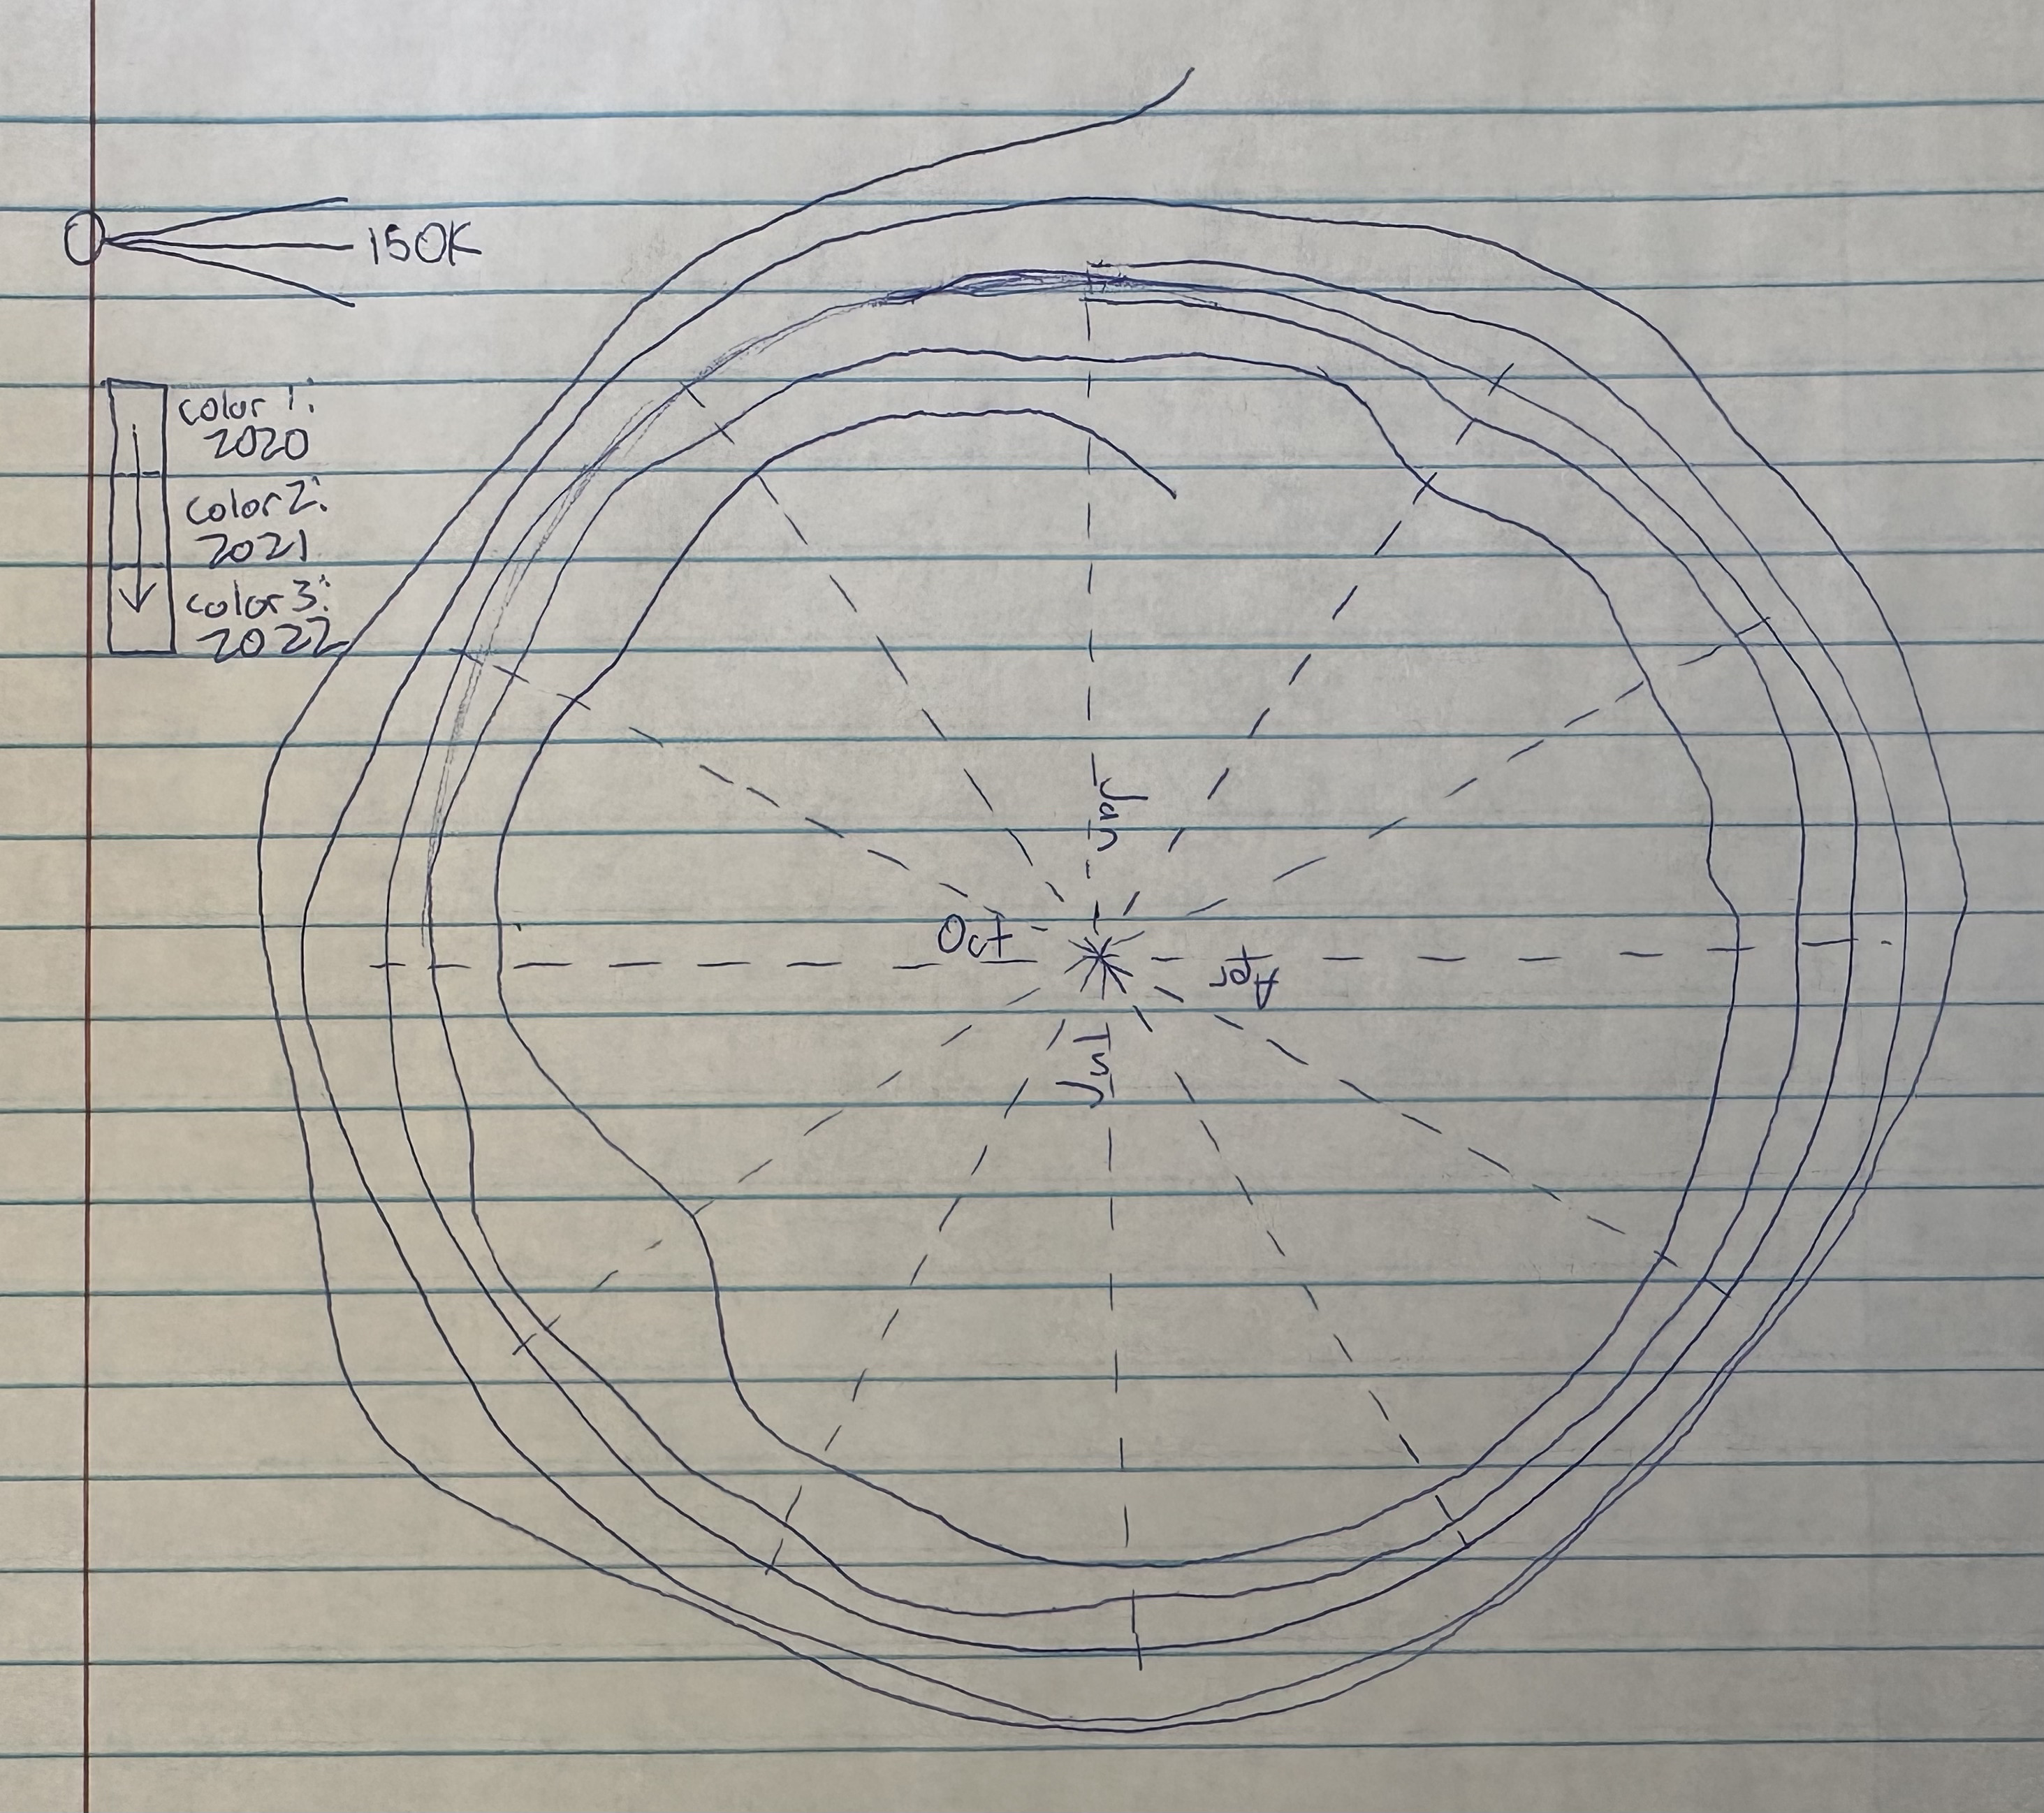 0
150K
color 1:
2020
color 2:
2021
color 3:
2022
Jan
Oct
Apr
Jul